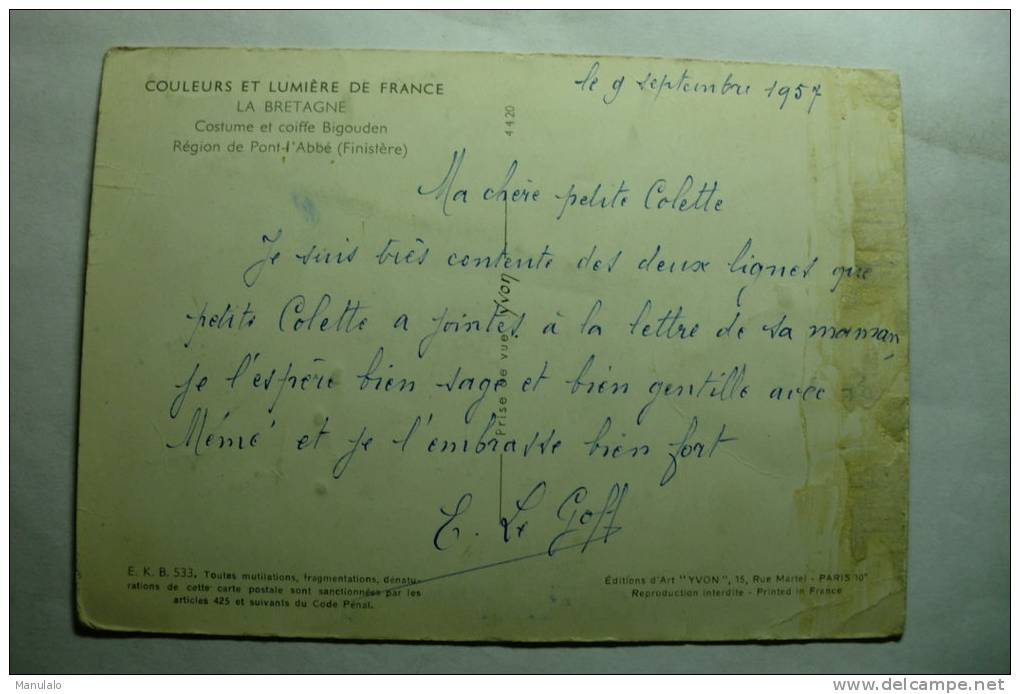 COULEURS ET LUMIÈRE DE FRANCE
LA BRETAGNE
Costume et coiffe Bigouden
Région de Pont-l'Abbé (Finistère)
le 9 septembre 1957
4420
Ma chère petite Colette
Je suis très contente des deux lignes que
petite Colette a jointes à la lettre de sa maman,
je l'espère bien sage et bien gentille avec
Mémé et je l'embrasse bien fort
E. Le Goff
Prise de vue Yvon
E. K. B. 533. Toutes mutilations, fragmentations, dénatu-
rations de cette carte postale sont sanctionnées par les
articles 425 et suivants du Code Pénal.
Éditions d'Art "YVON", 15, Rue Martel - PARIS 10e
Reproduction interdite - Printed in France
Manulalo
delcampe.net